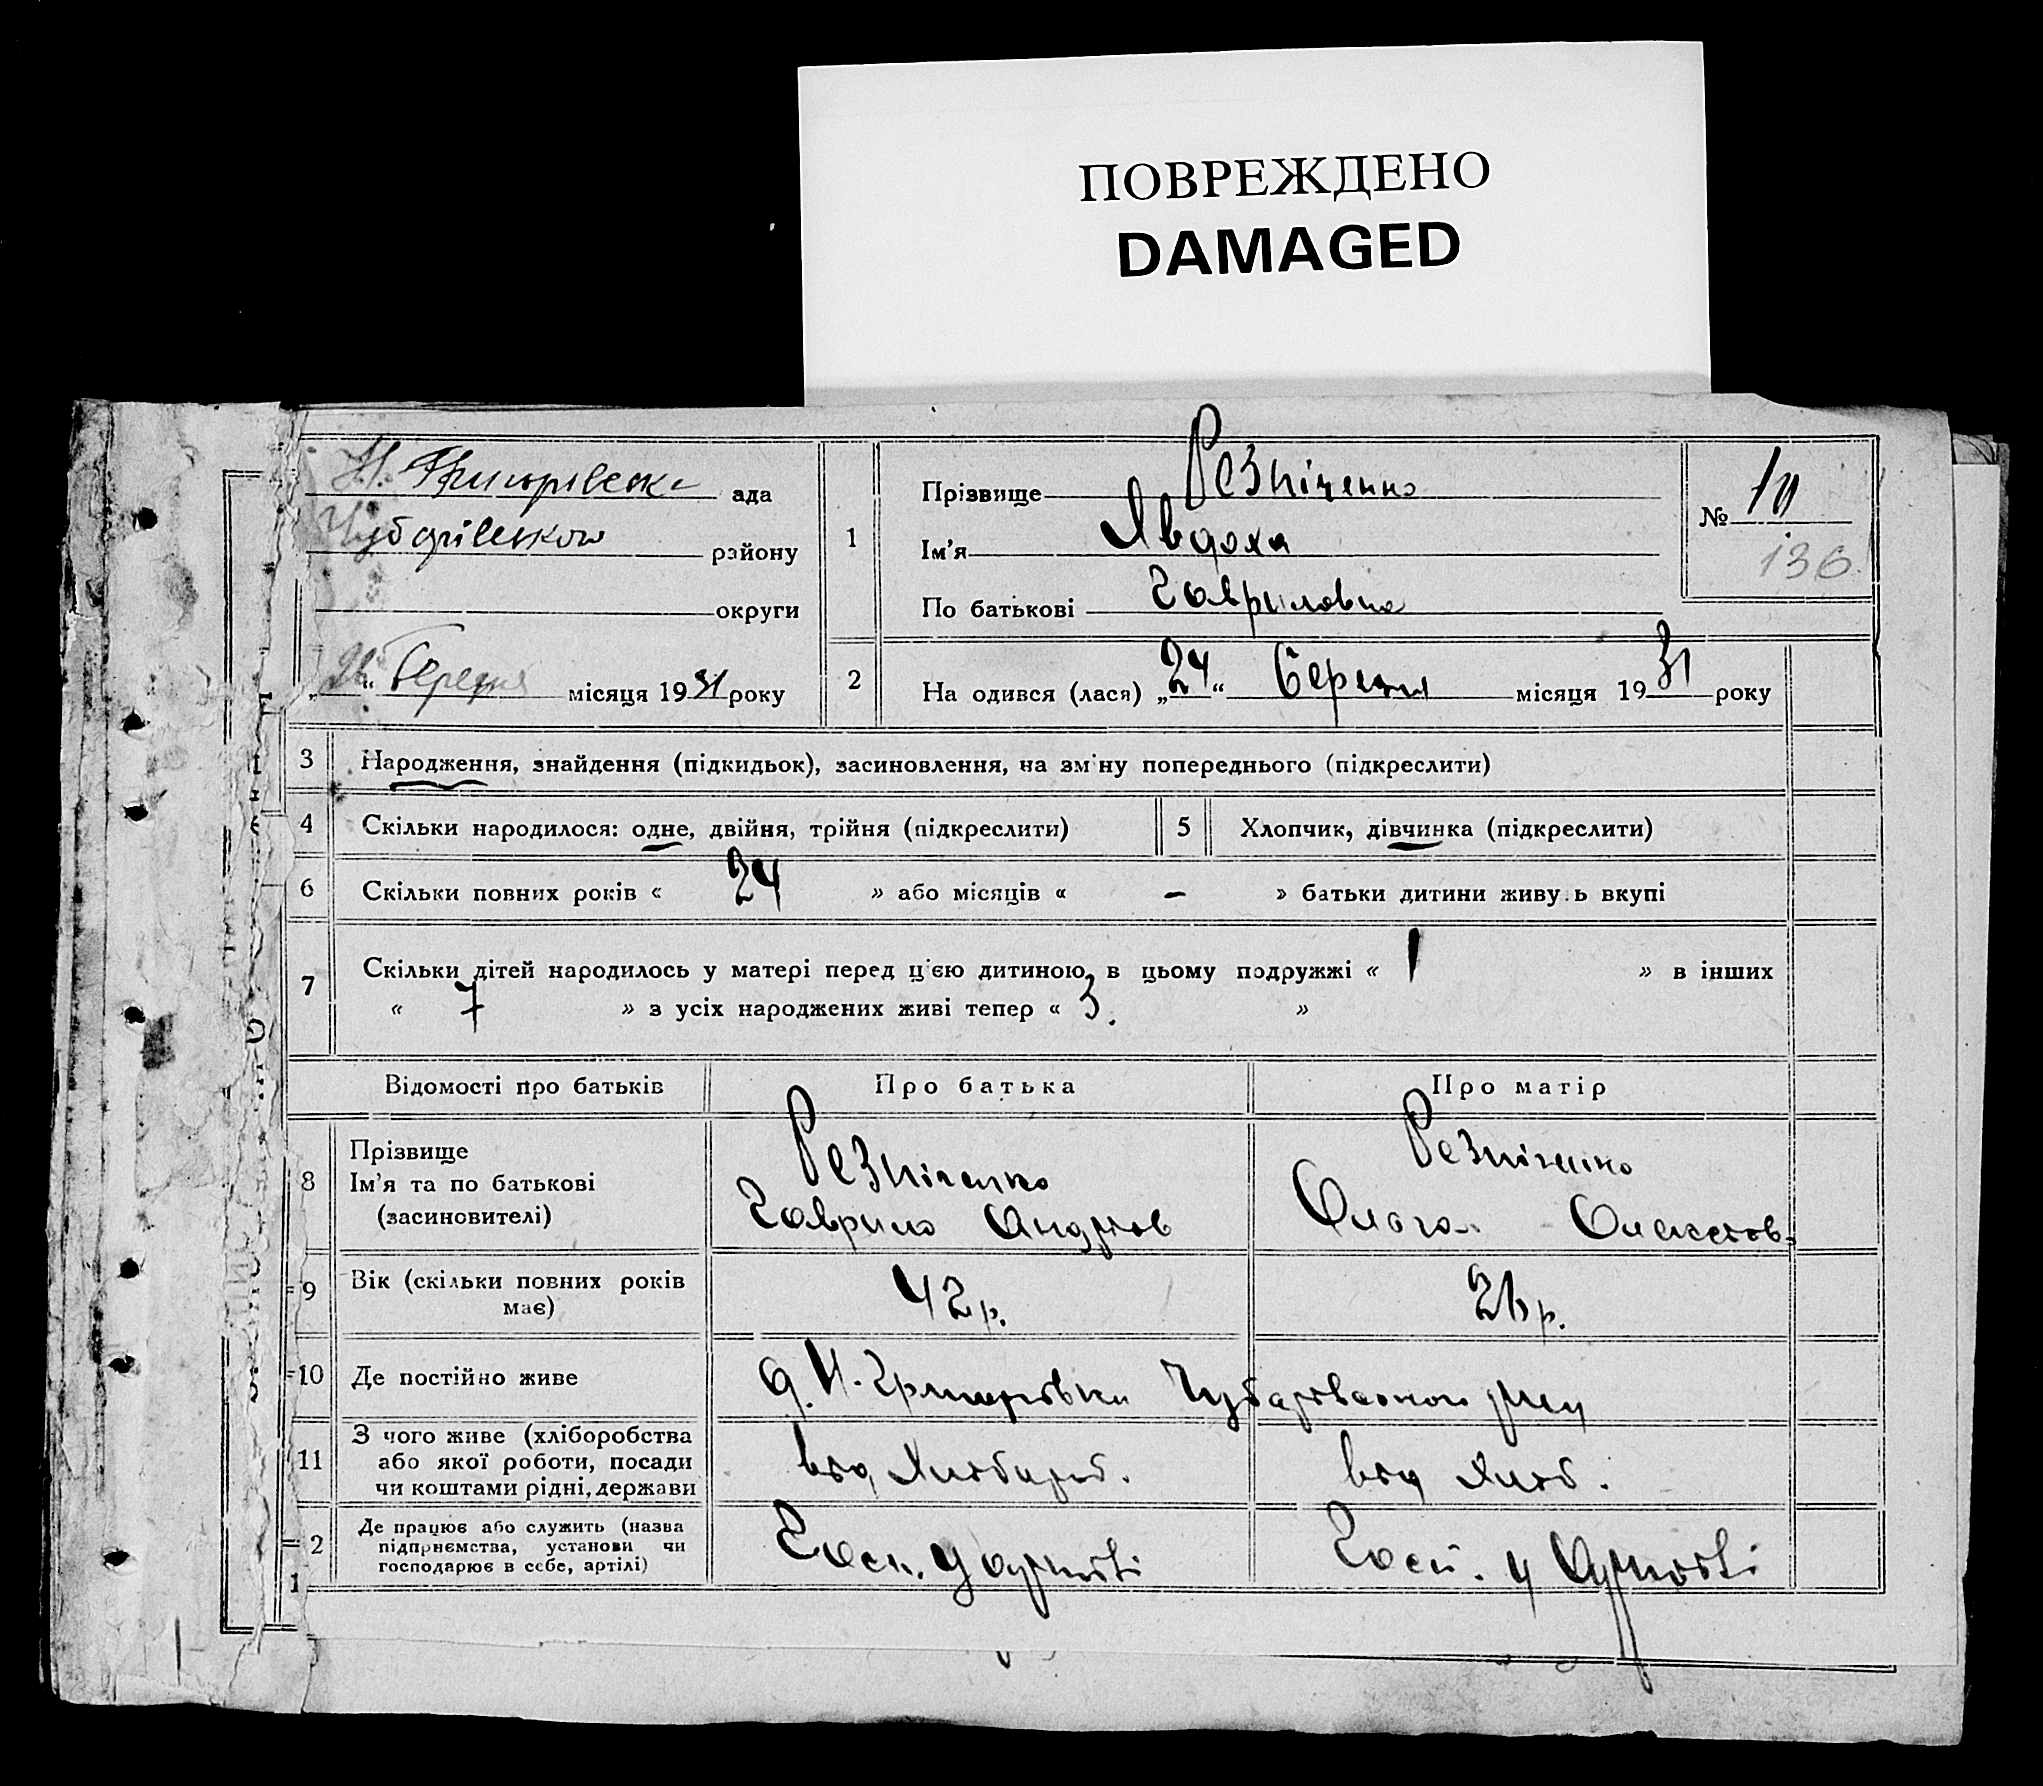 ПОВРЕЖДЕНО
DAMAGED
ада
Чубарівського району
округи
Березня місяця 1931 року
1
Прізвище Резніченко
Ім'я Явдоха
По батькові Гавриловна
№ 10
136
2
На одився (лася) „24“ Березня місяця 1931 року
3 Народження, знайдення (підкидьок), засиновлення, на зм ну попереднього (підкреслити)
4 Скільки народилося: одне, двійня, трійня (підкреслити) 5 Хлопчик, дівчинка (підкреслити)
6 Скільки повних років « 24 » або місяців « – » батьки дитини живу ь вкупі
7 Скільки дітей народилось у матері перед ц'єю дитиною, в цьому подружжі « 1 » в інших
« 7 » з усіх народжених живі тепер « 3. »
Відомості про батьків Про батька Про матір
8 Прізвище
Ім'я та по батькові
(засиновителі)
Резніченко
Гаврило Андріїв
Резніченко
Ольга
9 Вік (скільки повних років
має)
42 р. р.
10 Де постійно живе
Н. Григорівка Чубарівського
11 З чого живе (хліборобства
або якої роботи, посади
чи коштами рідні, держави
від Хлібороб. від Хліб.
12 Де працює або служить (назва
підприємства, установи чи
господарює в себе, артілі)
Госп. Госп. у